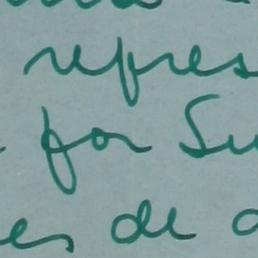 repres
for Su
es de a